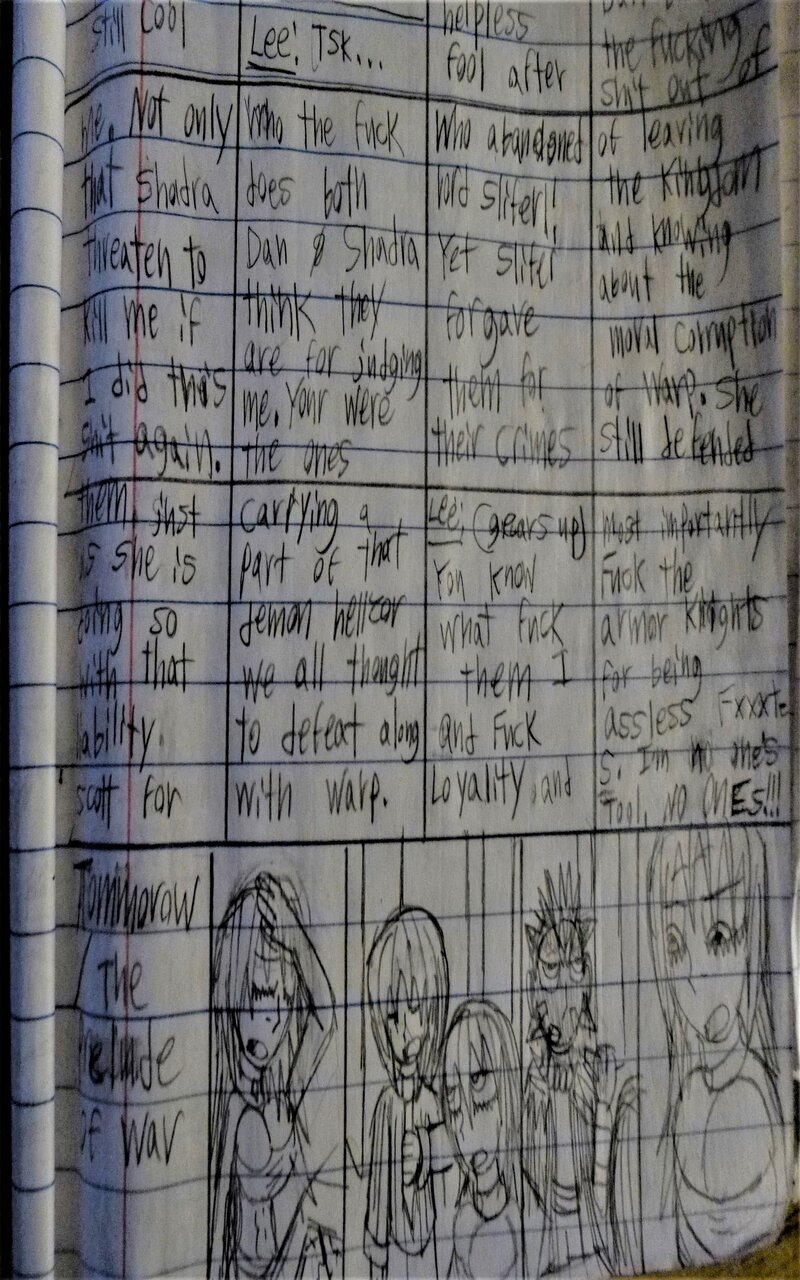 still cool
Lee: Tsk...
helpless
fool after
the fucking
shit out of
me. Not only
that Shadra
threaten to
kill me if
I did this
shit again.
Who the fuck
does both
Dan & Shadra
think they
are for judging
me. Your were
the ones
Who abandoned
lord sliter!!
Yet sliter
forgave
them for
their crimes
of leaving
the Kingdom
and knowing
about the
moral corruption
of Warp. She
still defended
them just
as she is
doing so
with that
liability.
scott for
carrying a
part of that
demon hellzor
we all thought
to defeat along
with Warp.
Lee: (gears up)
You know
what fuck
them I
and Fuck
Loyality, and
most importantly
Fuck the
armor knights
for being
assless Fxxxte
S. I'm no one's
Tool, NO ONES!!!
Tommorow
The
Prelude
of War